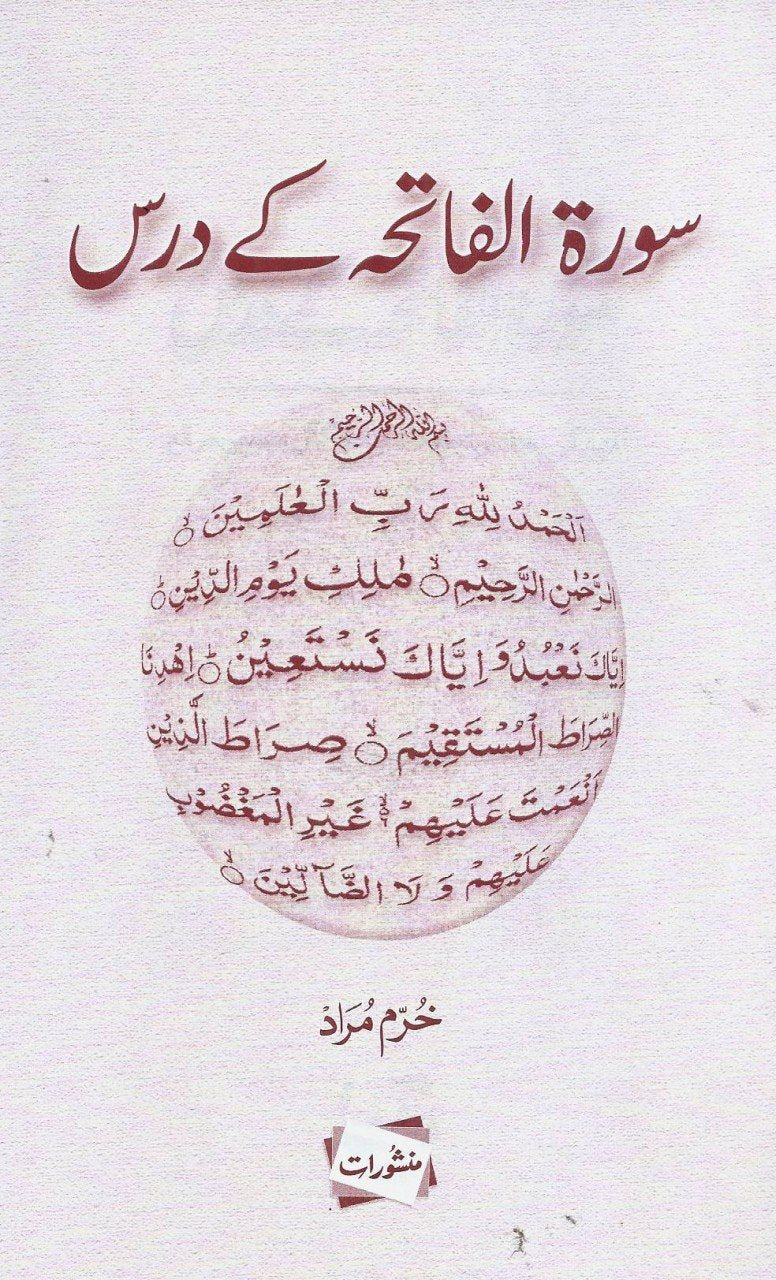 سورۃ الفاتحہ کے درس
بسم اللہ الرحمن الرحیم
اَلْحَمْدُ لِلّٰهِ رَبِّ الْعٰلَمِيْنَ ۙ
الرَّحْمٰنِ الرَّحِيْمِ ۙ مٰلِكِ يَوْمِ الدِّيْنِ ؕ
اِيَّاكَ نَعْبُدُ وَ اِيَّاكَ نَسْتَعِيْنُ ؕ اِهْدِنَا
الصِّرَاطَ الْمُسْتَقِيْمَ ۙ صِرَاطَ الَّذِيْنَ
اَنْعَمْتَ عَلَيْهِمْ ۙ غَيْرِ الْمَغْضُوْبِ
عَلَيْهِمْ وَ لَا الضَّآلِّيْنَ ۙ
خُرّم مُرَاد
منشورات